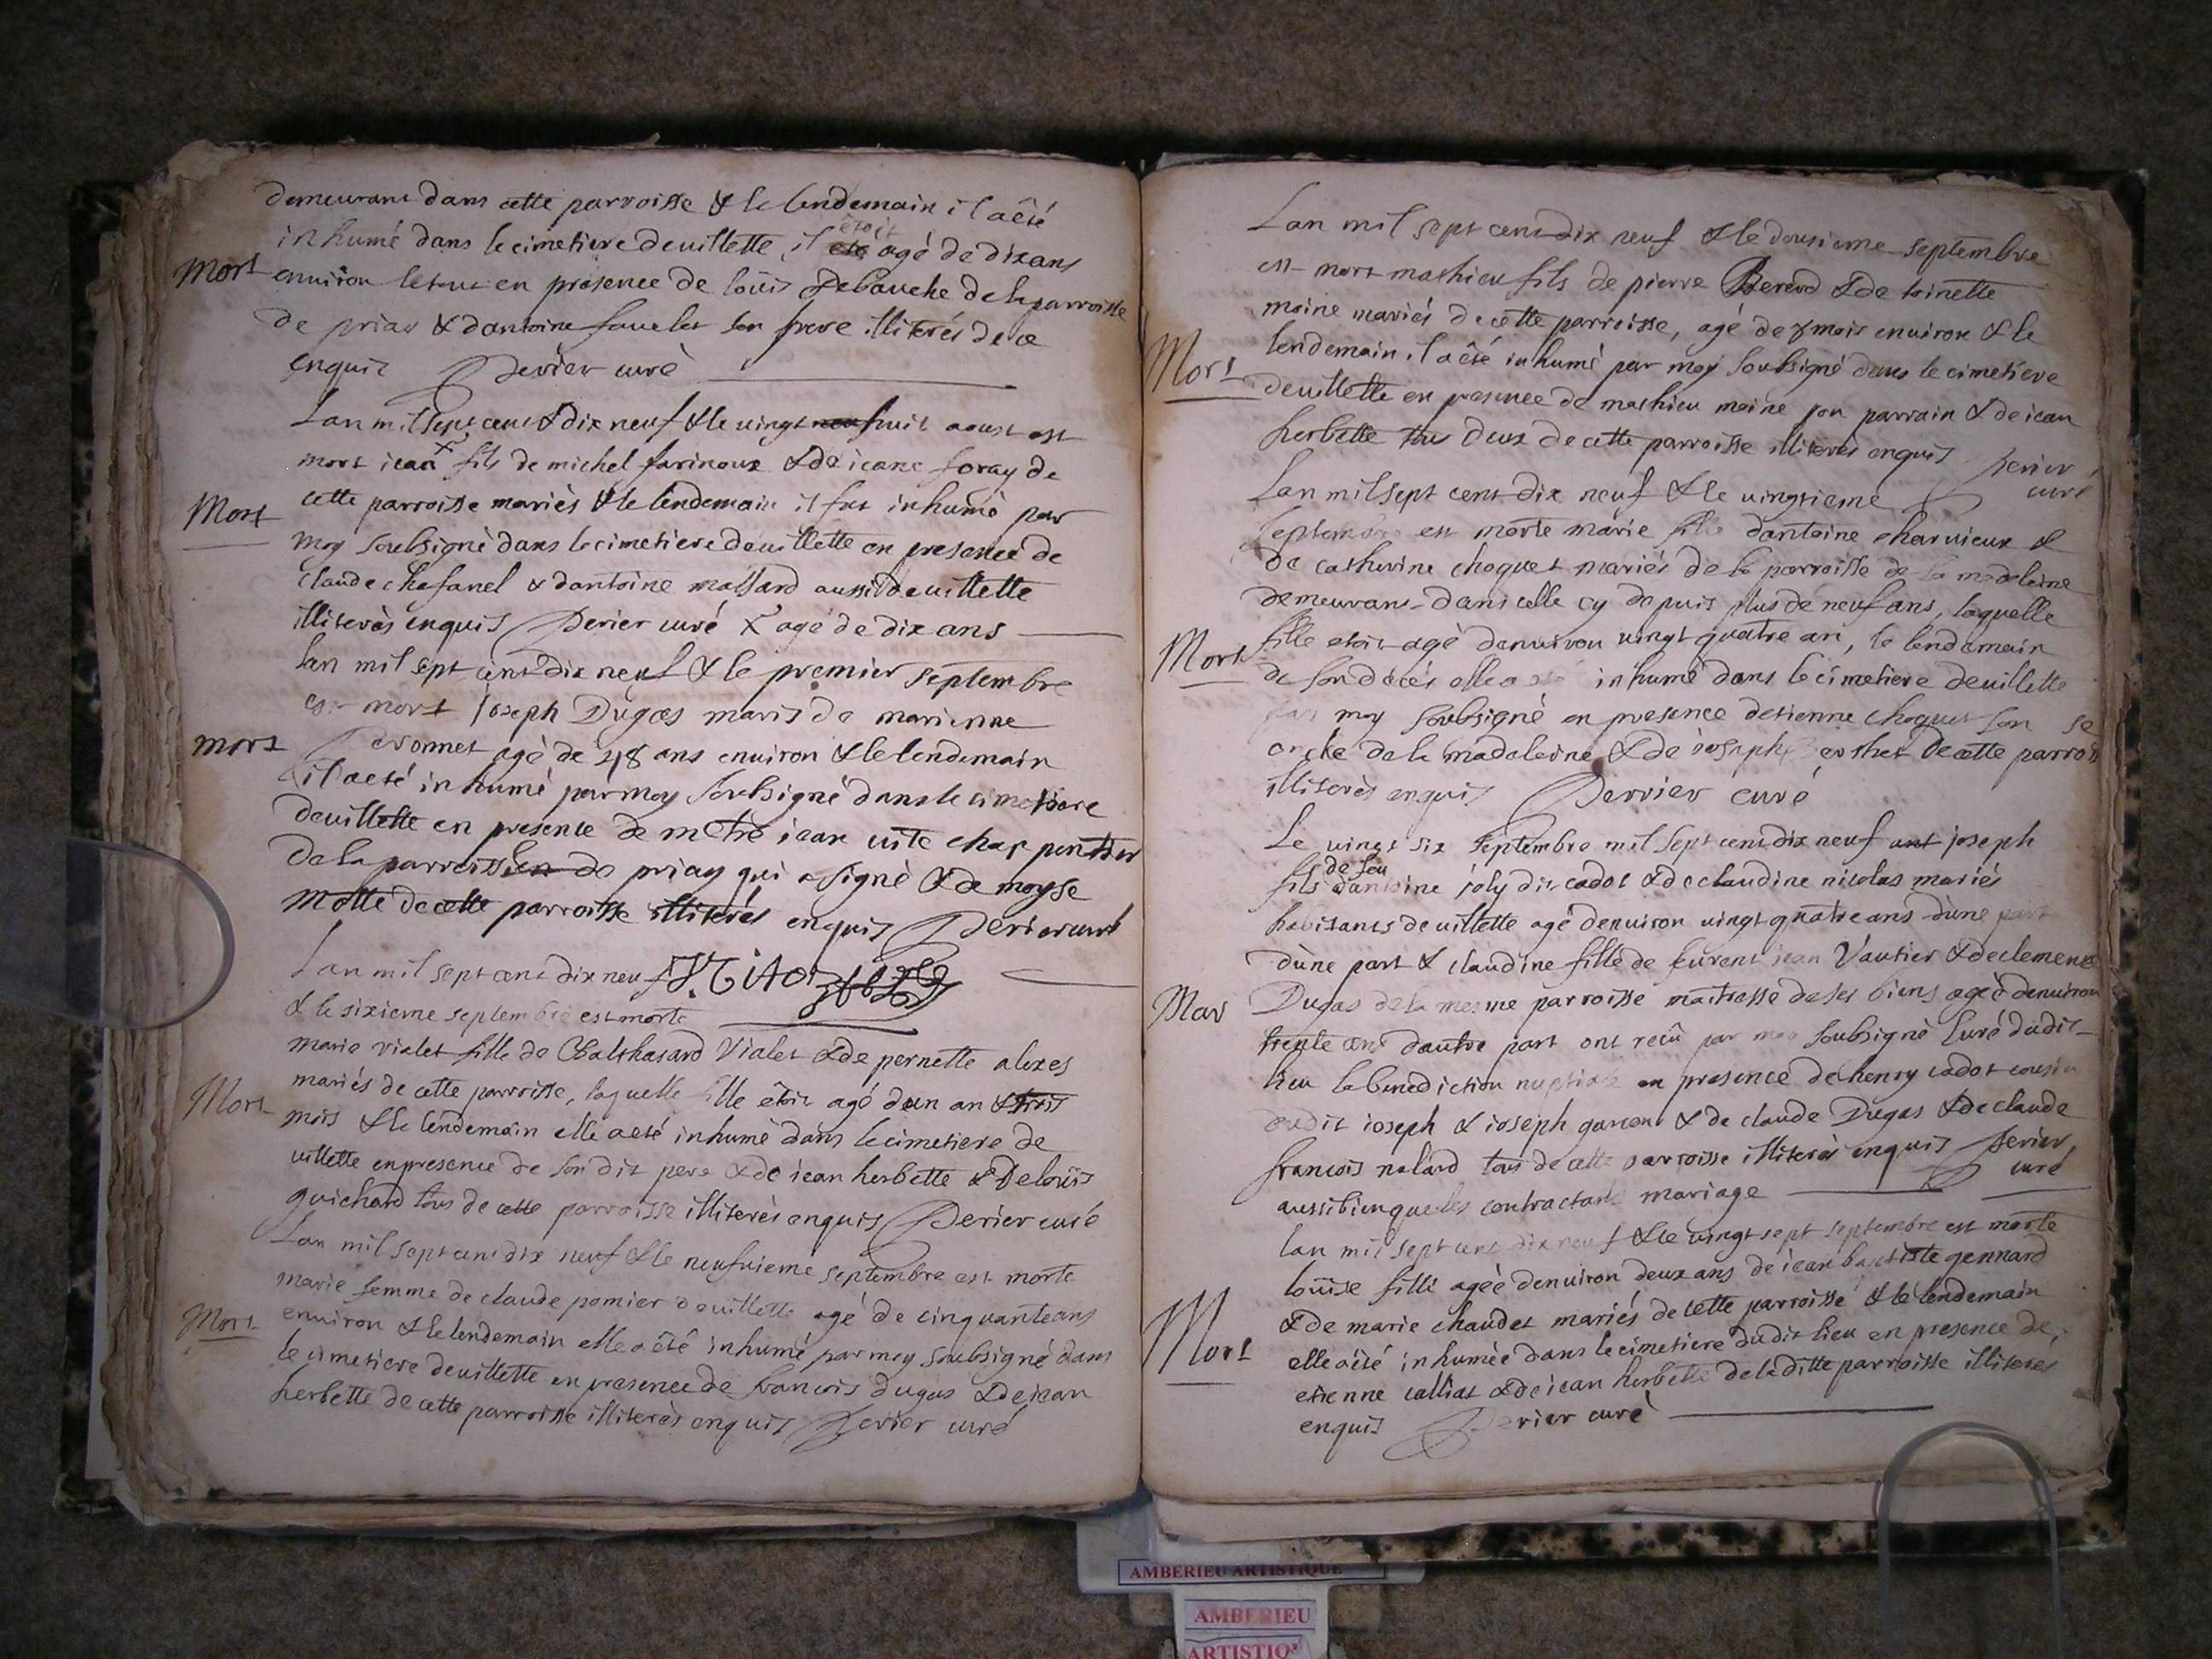 demeurant dans cette parroisse & le lendemain il a êté
inhumé dans le cimetiere de uillette, il étoit agé de dix ans
Mort
enuiron le tout en présence de loüis Debauche de la parroisse
de priay & dantoine fauelet son frere illiterés de ce
enquis Derier curé
Lan mil sept cent & dix neuf & le uingt huit aoust est
mort iean x fils de michel farinoux & de ieane foray de
Mort
cette parroisse mariés & le lendemain il fut inhumé par
moy soubsigné dans le cimetiere de uillette en presence de
claude chafanel & dantoine massard aussi de uillette
illiterés enquis Derier curé x agé de dix ans
lan mil sept cent dix neuf & le premier septembre
est mort Joseph Dugas maris de marienne
mort
Peronnet agé de 48 ans enuiron & le lendemain
il a eté inhumé par moy soubsigné dans le cimetiere
de uillette en presence de metre iean uite charpentier
de la parroisse de priay qui a signé & de moyse
motte de cette parroisse illiterés enquis Derier curé
Lan mil sept cent dix neuf
& le sixieme septembre est morte
marie vialet fille de Balthasard Vialet & de pernette alexes
Mort
mariés de cette parroisse, laquelle fille étoit agé dun an & trois
mois & le lendemain elle a eté inhumé dans le cimetiere de
uillette en presence de son dit pere & de iean herbette & De loüis
guichard tous de cette parroisse illiterés enquis Derier curé
Lan mil sept cent dix neuf & le neufuieme septembre est morte
marie femme de claude pomier de uillette agé de cinquante ans
Mort
enuiron & le lendemain elle a êté inhumé par moy soubsigné dans
le cimetiere de uillette en presence de francois dugas & de iean
herbette de cette parroisse illiterés enquis Derier curé
Lan mil sept cent dix neuf & le dousieme septembre
est mort mathieu fils de pierre Bererd & de toinette
moine mariés de cette parroisse, agé de mois enuiron & le
Mort
lendemain il a êté inhumé par moy soubsigné dans le cimetiere
de uillette en presence de mathieu moine son parrain & de iean
herbette deux de cette parroisse illiterés enquis Derier curé
Lan mil sept cent dix neuf & le uingtieme
septembre est morte marie fille dantoine charuieux &
de catherine choquet mariés de la parroisse de la madeleine
demeurant dans celle cy depuis plus de neuf ans, laquelle
Mort
fille etoit agé denuiron uingt quatre an, le lendemain
de son décés elle a eté inhumé dans le cimetiere de uillette
par moy soubsigné en presence detienne choquet son
oncle de la madeleine & de ioseph de cette parroisse
illiterés enquis Derrier curé
Le uingt six septembre mil sept cent dix neuf ont joseph
fils de feu dantoine joly dit cadot & de claudine nicolas mariés
habitants de uillette agé denuiron uingt quatre ans dùne part
dùne part & claudine fille de leurent iean Vautier & de clemence
Mar
Dugas de la mesme parroisse maitresse de ses biens ageé denuiron
trente ans dautre part ont reçû par moy soubsigné Curé dudit
lieu la benediction nuptiale en presence de henry cadot cousin
dudit ioseph & ioseph garcon & de claude Dugas & de claude
francois nalard tous de cette parroisse illiterés enquis Derier curé
aussi bien que les contractants mariage
lan mil sept cent dix neuf & le uingt sept septembre est morte
loüise fille ageé denuiron deux ans de iean baptiste gennard
Mort
& de marie chaudet mariés de cette parroisse & le lendemain
elle a êté inhumée dans le cimetiere dudit lieu en presence de
etienne callias & de iean herbette de la ditte parroisse illiterés
enquis Derier curé
AMBERIEU ARTISTIQUE
AMBERIEU
ARTISTIQ